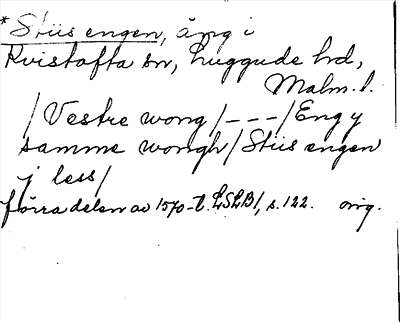 * Stiis engen, äng i
Kvistofta sn, Luggude hd,
Malm. l.
/ Vestre wong / - - - / Eng y
samme wongh / Stiis engen
j less /
förra delen av 1570-t. LSLB1, s. 122. orig.